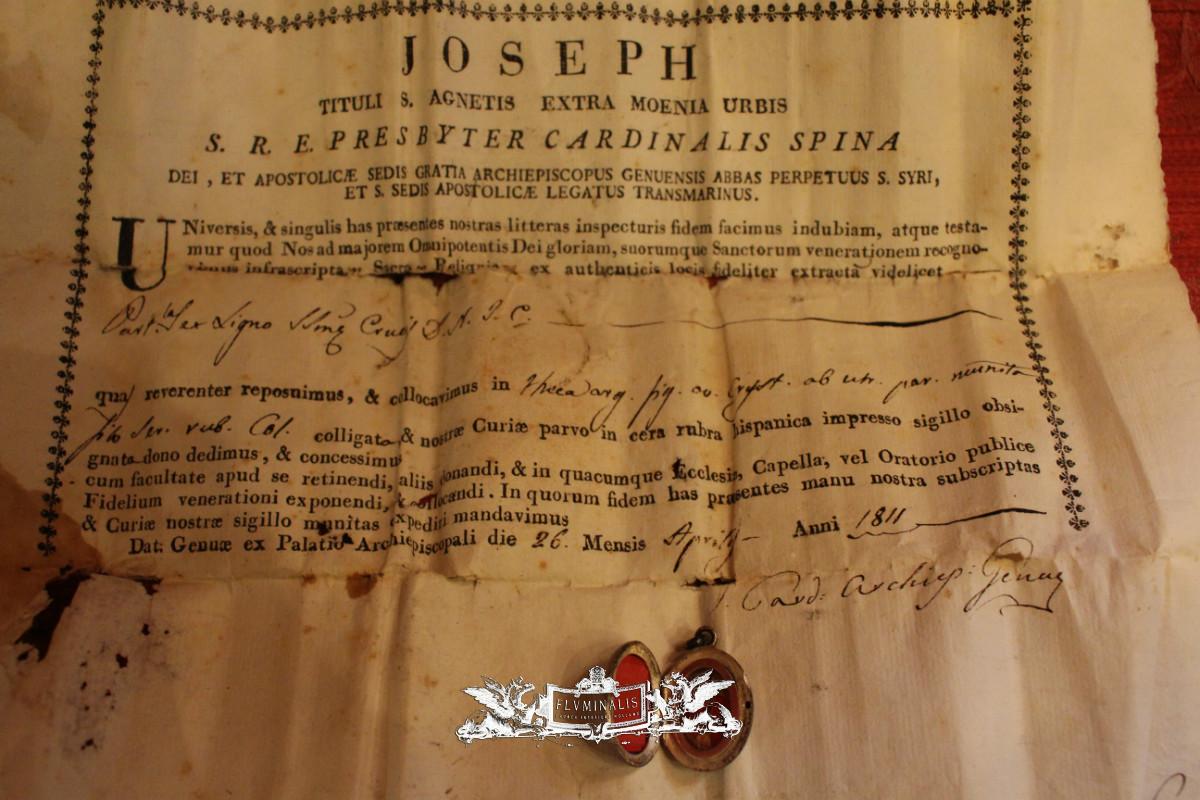 JOSEPH
TITULI S. AGNETIS EXTRA MOENIA URBIS
S. R. E. PRESBYTER CARDINALIS SPINA
DEI, ET APOSTOLICÆ SEDIS GRATIA ARCHIEPISCOPUS GENUENSIS ABBAS PERPETUUS S. SYRI,
ET S. SEDIS APOSTOLICÆ LEGATUS TRANSMARINUS.
UNiversis, & singulis has præsentes nostras litteras inspecturis fidem facimus indubiam, atque testa-
mur quod Nos ad majorem Omnipotentis Dei gloriam, suorumque Sanctorum venerationem recogno-
vimus infrascriptas Sacras Reliquias ex authenticis locis fideliter extractâ videlicet
ex Ligno SSmæ Crucis D. N. J. C.
quas reverenter reposuimus, & collocavimus in theca arg. fig. ov. Cryst. ab utr. par. munita
ser. rub. Col. colligata & nostræ Curiæ parvo in cera rubra hispanica impresso sigillo obsi-
gnata dono dedimus, & concessimus
cum facultate apud se retinendi, aliis donandi, & in quacumque Ecclesia, Capella, vel Oratorio publice
Fidelium venerationi exponendi, & collocandi. In quorum fidem has præsentes manu nostra subscriptas
& Curiæ nostræ sigillo munitas expediri mandavimus
Dat: Genuæ ex Palatio Archiepiscopali die 26. Mensis Aprilis Anni 1811
Card: Archiep: Genuæ
FLVMINALIS